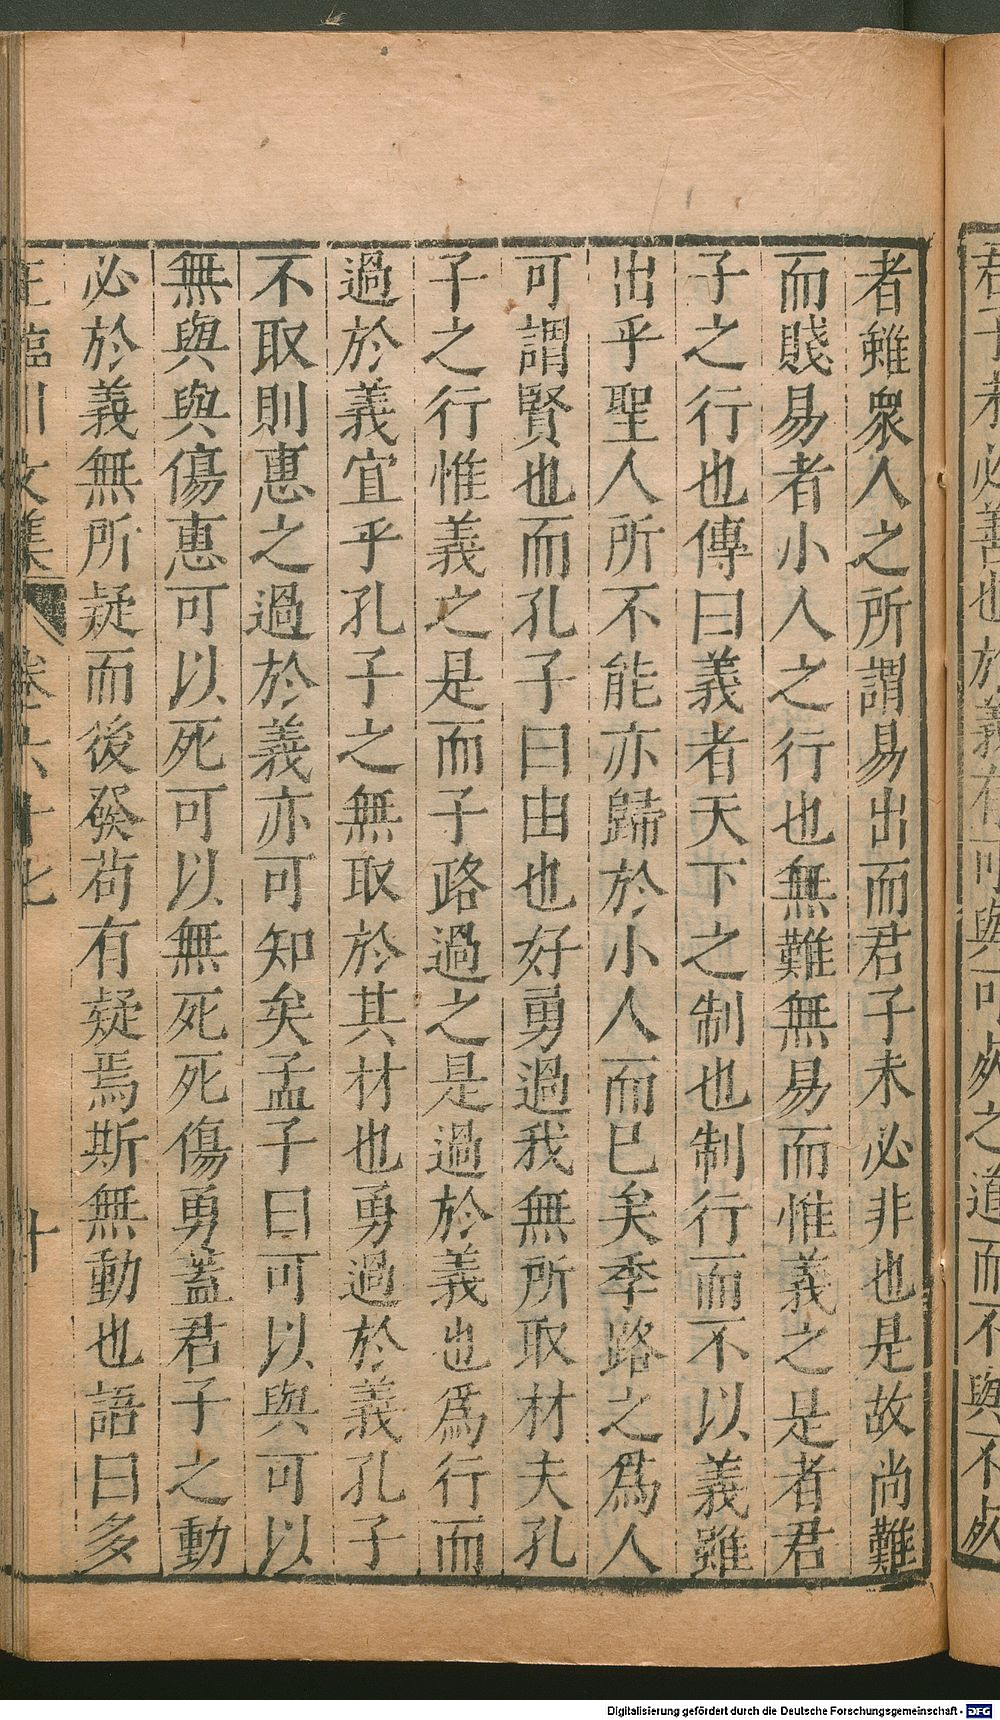 者雖衆人之所謂易出而君子未必非也是故尚難
而賤易者小人之行也無難無易而惟義之是者君
子之行也傳曰義者天下之制也制行而不以義雖
出乎聖人所不能亦歸於小人而已矣季路之爲人
可謂賢也而孔子曰由也好勇過我無所取材夫孔
子之行惟義之是而子路過之是過於義也爲行而
過於義宜乎孔子之無取於其材也勇過於義孔子
不取則惠之過於義亦可知矣孟子曰可以與可以
無與與傷惠可以死可以無死死傷勇蓋君子之動
必於義無所疑而後發苟有疑焉斯無動也語曰多
王臨川文集 卷六十七 十
Digitalisierung gefördert durch die Deutsche Forschungsgemeinschaft - DFG